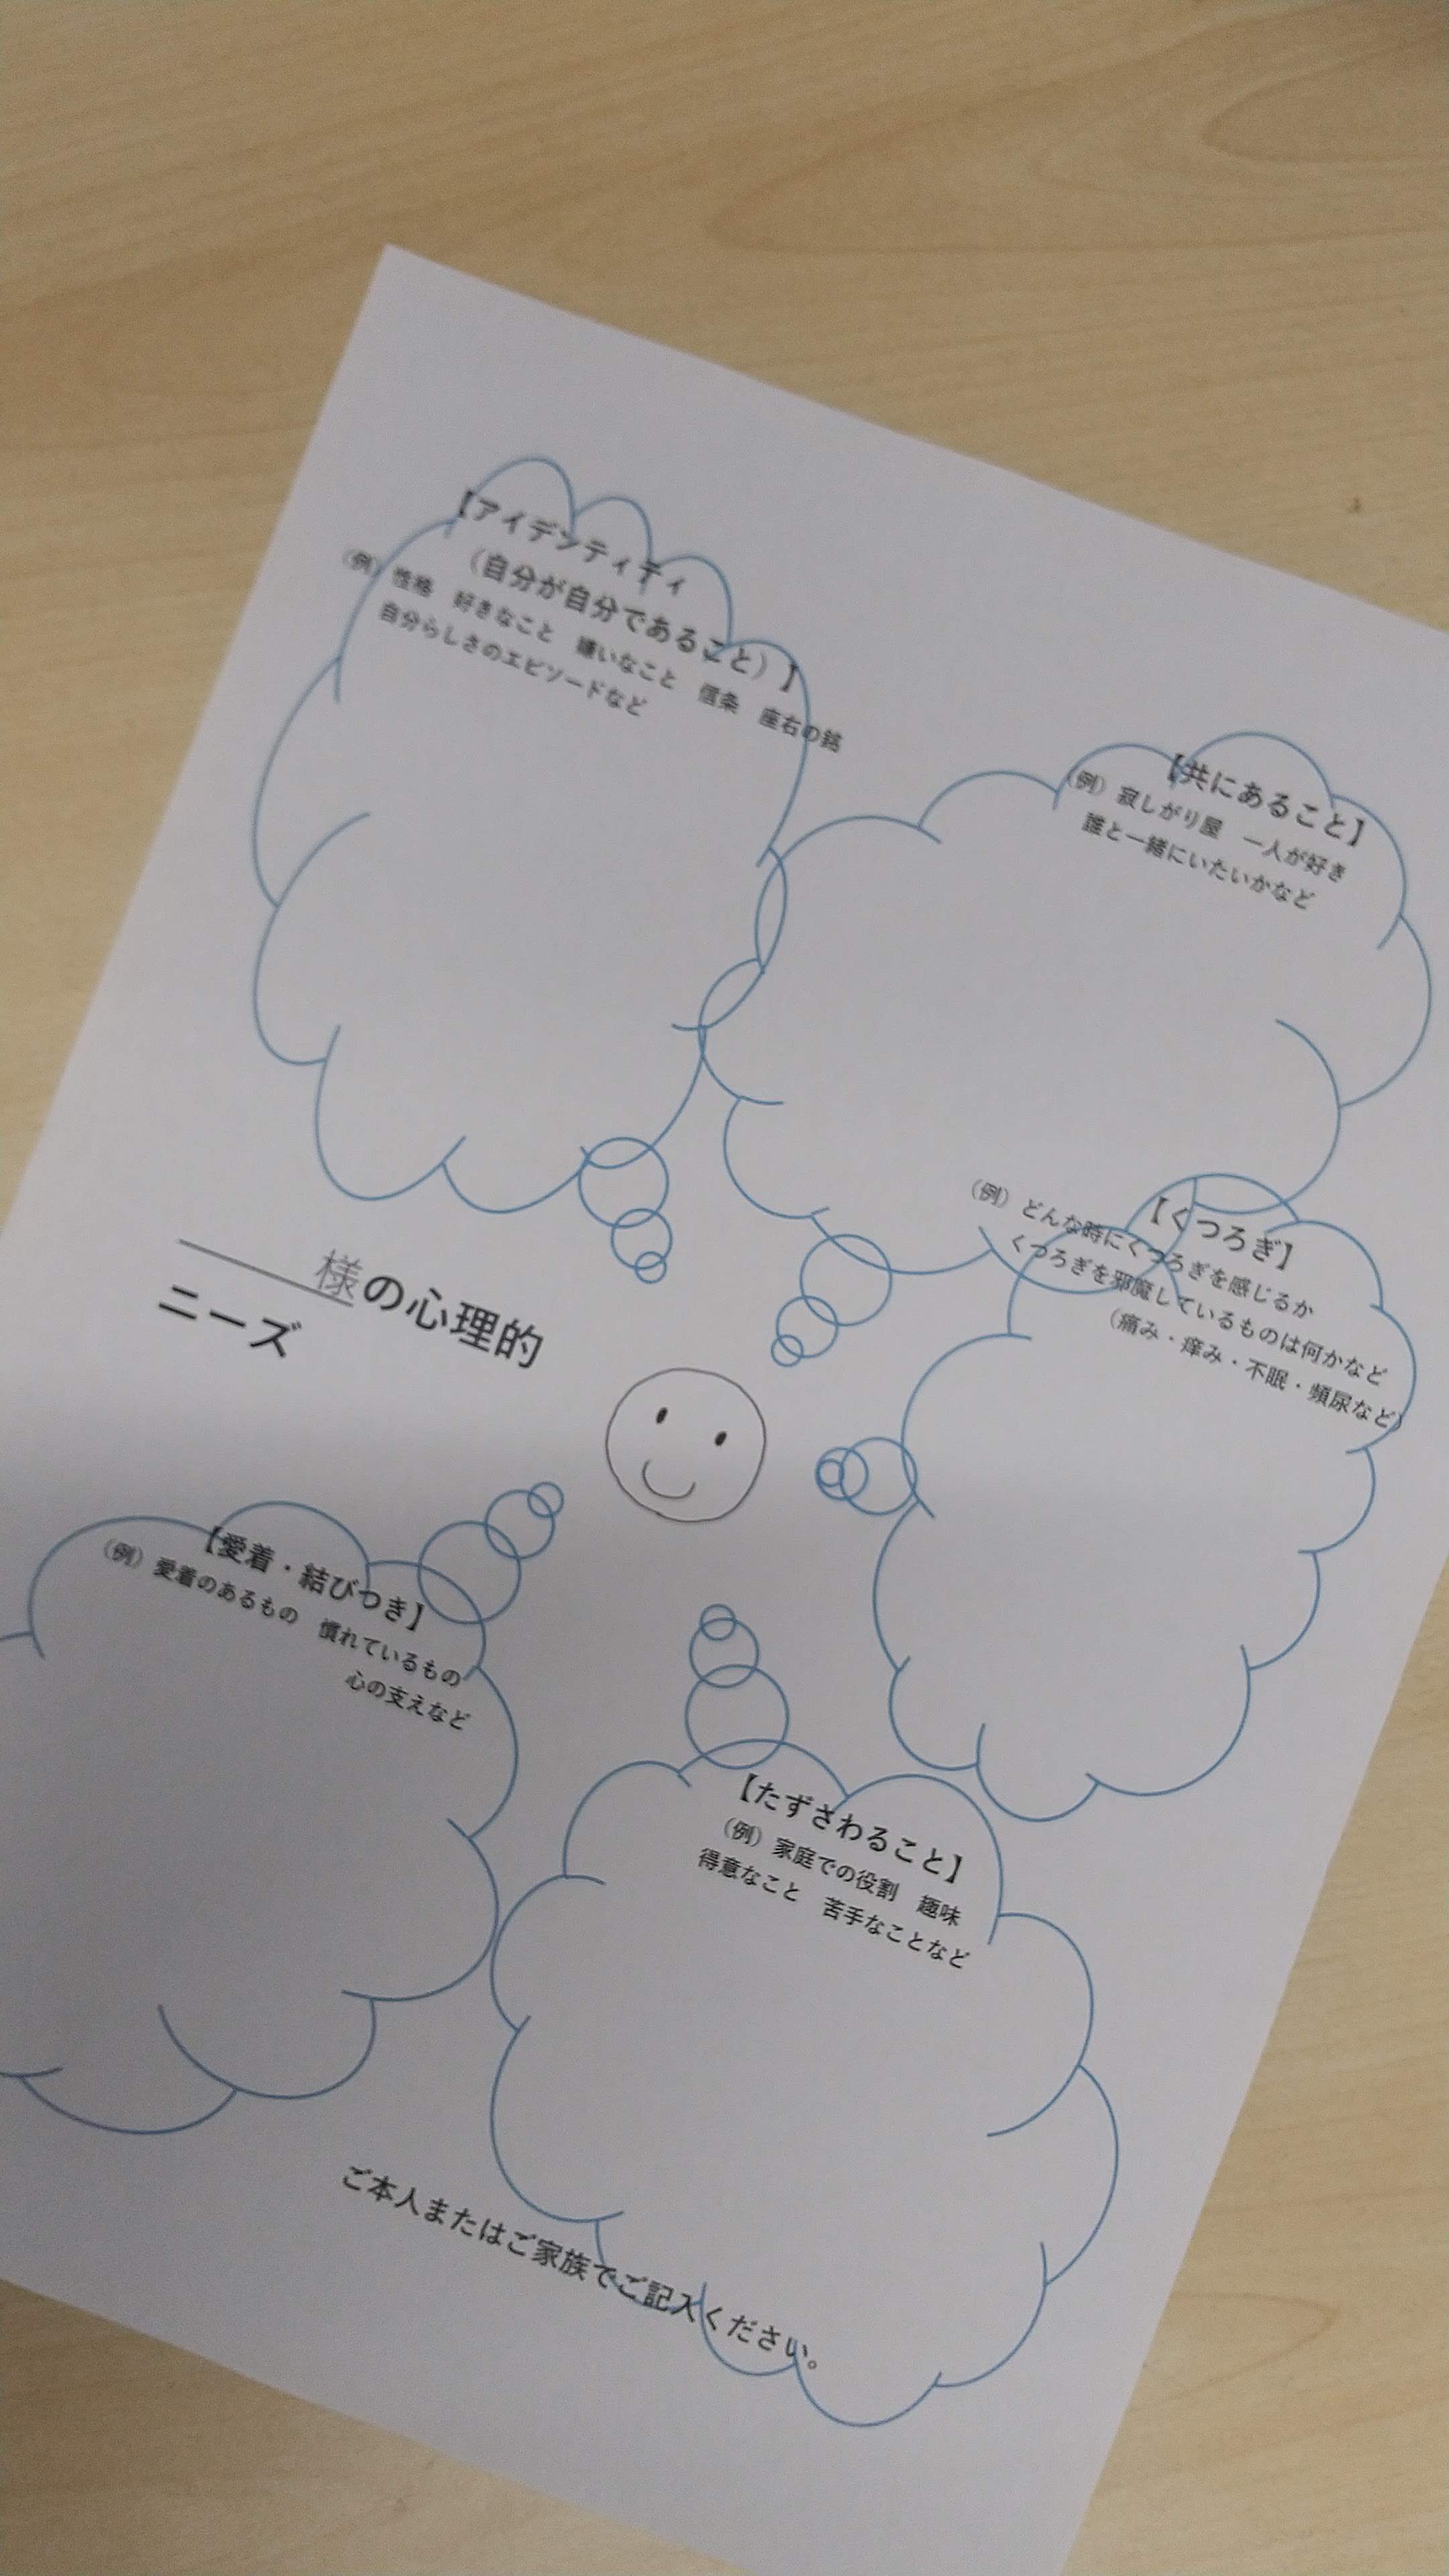 【アイデンティティ
（自分が自分であること）】
（例）性格　好きなこと　嫌いなこと　信条　座右の銘
自分らしさのエピソードなど
【共にあること】
（例）寂しがり屋　一人が好き
誰と一緒にいたいかなど
【くつろぎ】
（例）どんな時にくつろぎを感じるか
くつろぎを邪魔しているものは何かなど
（痛み・痒み・不眠・頻尿など）
様の心理的
ニーズ
【愛着・結びつき】
（例）愛着のあるもの　慣れているもの
心の支えなど
【たずさわること】
（例）家庭での役割　趣味
得意なこと　苦手なことなど
ご本人またはご家族でご記入ください。